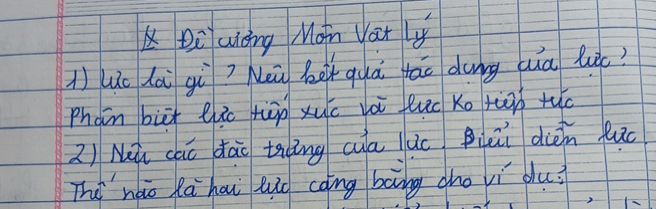 Đề cương Môn Vật lý
1) Lực là gì? Nêu kết quả tác dụng của lực?
Phân biệt lực tiếp xúc và lực ko tiếp túc
2) Nêu các đặc trưng của lực. Biểu diễn lực
Thế nào là hai lực cân bằng cho ví dụ?